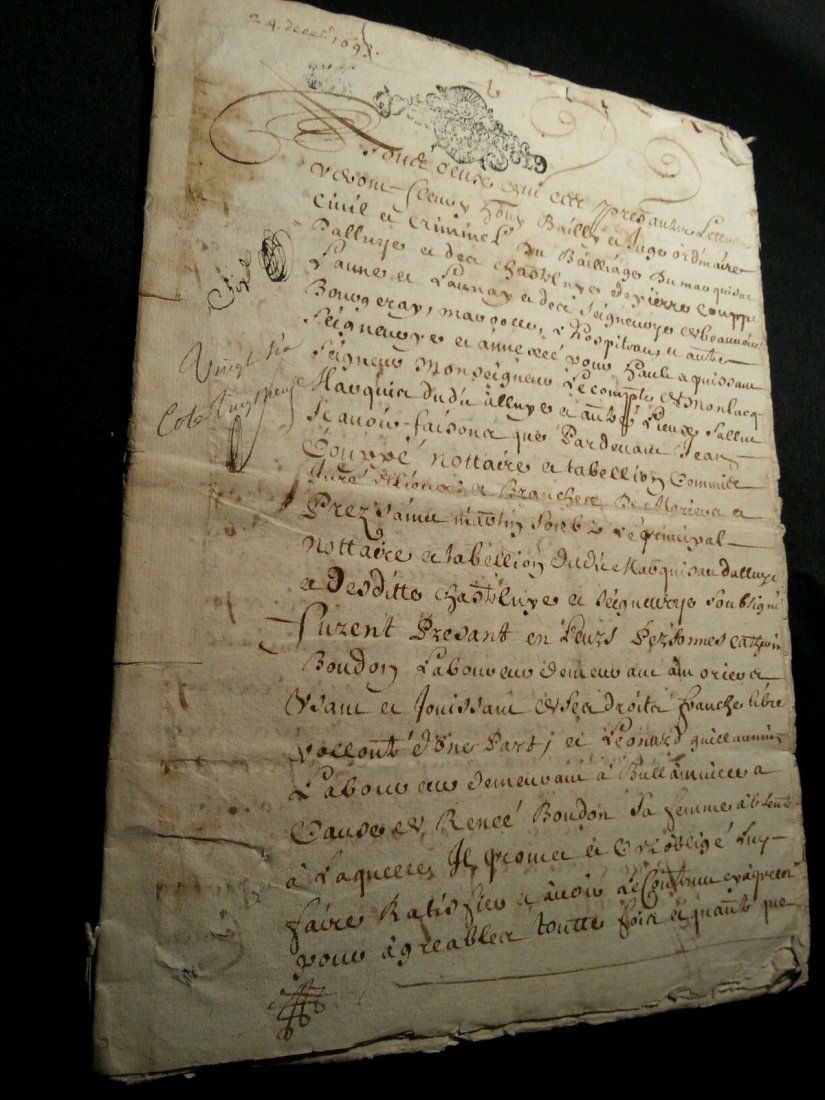 24 decem. 1693
A Tous Ceux qui ces presantes Lettres
verront
Bailly et Juge ordinaire
Civil et Criminel du Bailliage du marquisat
Dalluye et des chastelnyes de pierre Couppe
Launay et des Seigneuryes et beaumois
Bougeray, Lhospitau, et autre
Seigneurye et annexée pour haut et puissant
Seigneur Monseigneur Le compte de Monlucq
Marquis dudit alluye et autres Lieux Sallut
Scavoir faisons que Pardevant Jean
Couppé nottaire et tabellion Commis
Juré et Branches De Moriers et
Prez Sainct martin Soubz Le principal
nottaire et tabellion dudit Marquisat dalluye
et desditte chastelnye et Seigneurye Soubsigné
Furent Presant en Leurs Personnes
Boudon Laboureur demeurant a moriers
Usant et Jouissant de ses droits franche libre
vollonté d'une Part, et Leonard guillaumin
Laboureur demeurant à Bullainville a
Cause de Reneé Boudon Sa femme absente
à Laquelle Il promet et Obligé Luy
faire Ratiffier et avoir Le Contenu
pour agreables touttes fois et quant que
Vingt six
Cote